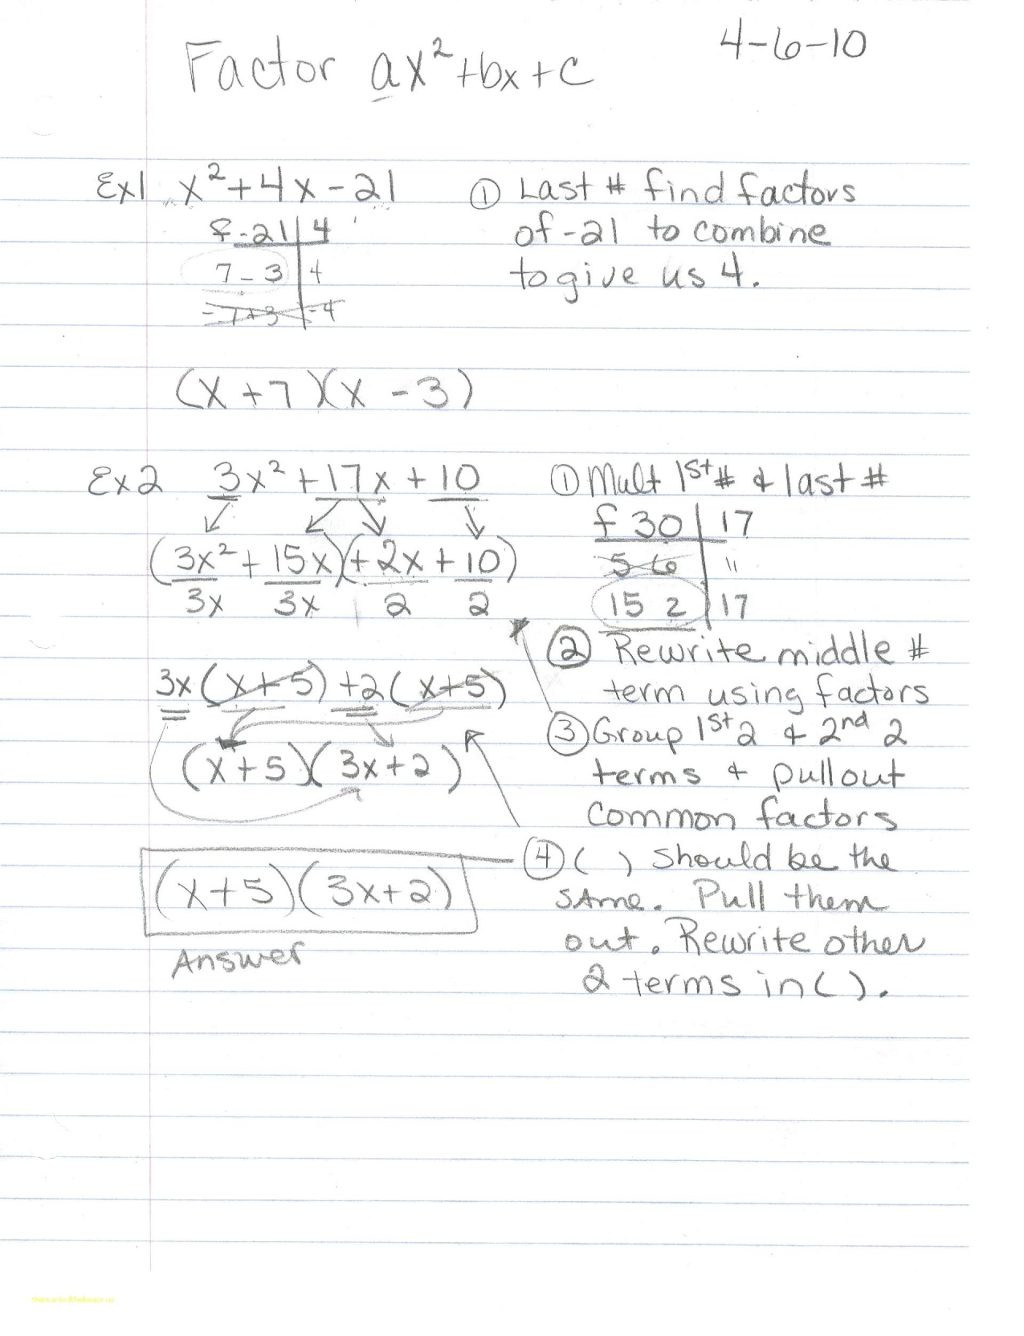 Factor ax²+bx+c 4-6-10
Ex1 x²+4x-21 ① Last # find factors
f -21 | 4 of -21 to combine
7 -3 | 4 to give us 4.
-7+3 | -4
(x+7)(x-3)
Ex2 3x²+17x+10 ① Mult 1st # & last #
f 30 | 17
(3x²+15x)(+2x+10) 5 6 | 11
3x 3x 2 2 15 2 | 17
② Rewrite middle #
3x(x+5)+2(x+5) term using factors
③ Group 1st 2 & 2nd 2
(x+5)(3x+2) terms & pull out
common factors
④ ( ) should be the
(x+5)(3x+2) same. Pull them
Answer out. Rewrite other
2 terms in ( ).